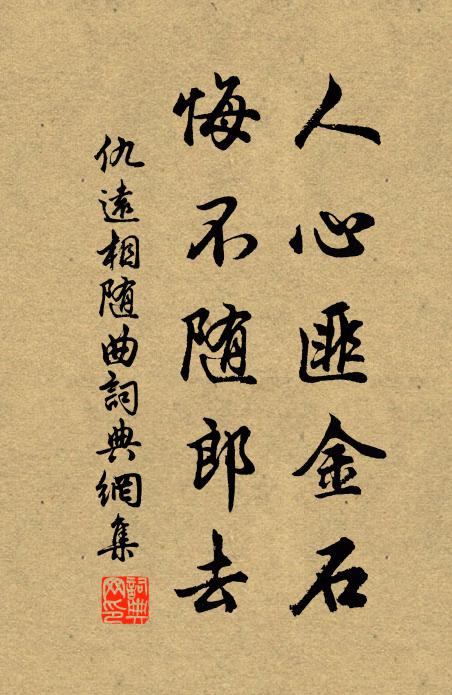 人心匪金石
悔不随郎去
仇遠相随曲詞典網集
詞典网印